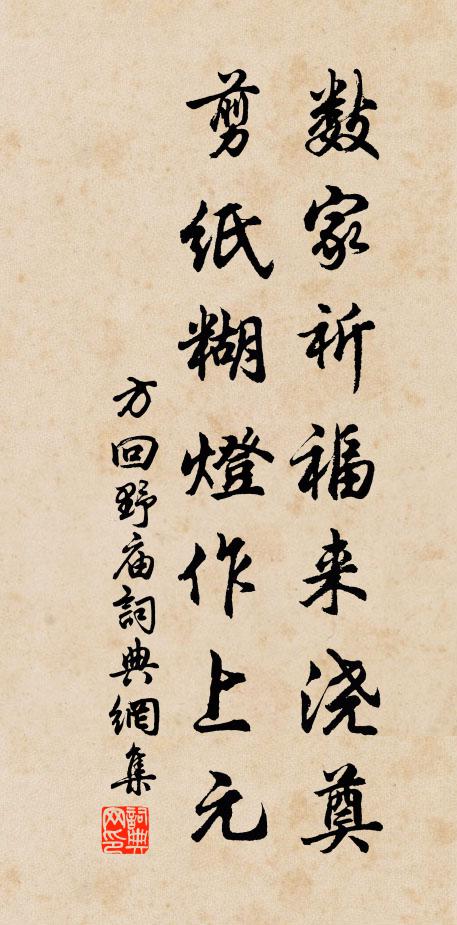 数家祈福来浇奠
剪纸糊燈作上元
方回野庙詞典網集
詞典网印